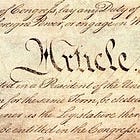 of Congress, lay any Duty of
foreign Power, or engage in
Article
in a President of the
for the same Term, be elected
as the Legislature
be entitled in the Congress